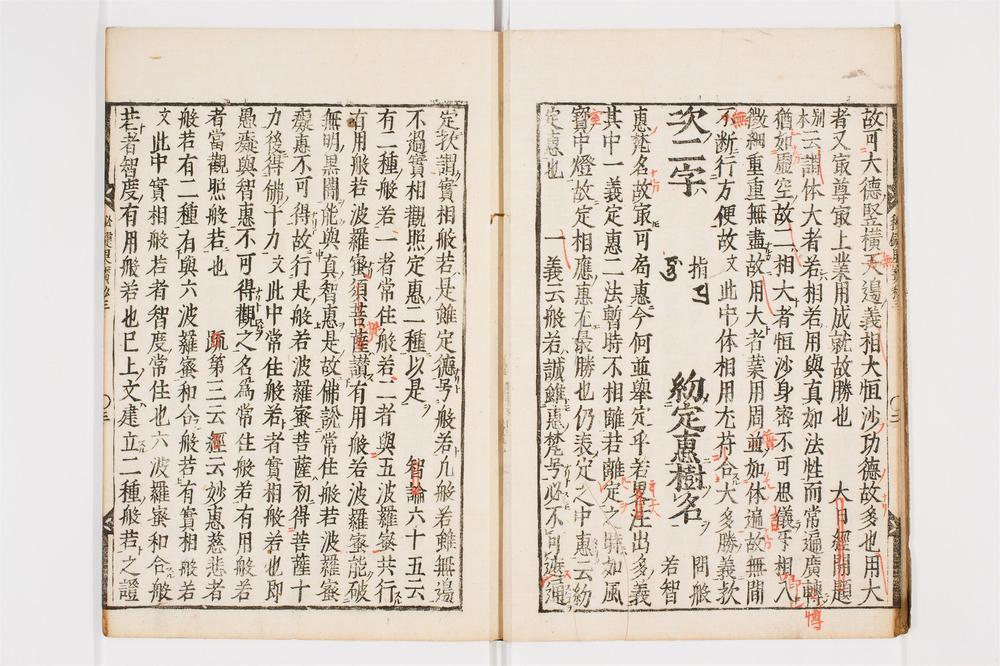 故可大德竪橫无邊義相大恒沙功德故多也用大
者又㝡尊㝡上業用成就故勝也 大日經開題
別本云謂体大者若相若用與真如法性而常遍廣轉
猶如虛空故二相大者恒沙身密不可思議
微細重重無盡故用大者業用周並如体遍故無間
不断行方便故文 此中体相用尤苻合大多勝義欤
次二字 指 約定惠樹名 問般若智
惠梵名故㝡可局惠今何並擧定乎若出多義
其中一義定惠二法暫時不相離若離定之時如風
中燈故定相應惠尤最勝也仍表定之中惠云約
定惠也 一義云般若誠雖惠梵号必不可
定欤謂實相般若是雖定德号般若凡般若雖無邊
不過實相觀照定惠二種以是 智論六十五云
有二種般若一者常住般若二者與五波羅蜜共行
有用般若波羅蜜須菩薩讃有用般若波羅蜜能破
無明黑闇能與真智惠是故佛說常住般若波羅蜜
癡惠不可得故行是般若波羅蜜菩薩初得菩薩十
力後得佛十力文 此中常住般若者實相般若也即
愚癡與智惠不可得觀之名爲常住般若有用般若
者當觀照般若也 疏第三云經云妙惠慈悲者
般若有二種有與六波羅蜜和合般若有實相般若
文 此中實相般若者智度常住也六波羅蜜和合般
若者智度有用般若也已上文建立二種般若之證